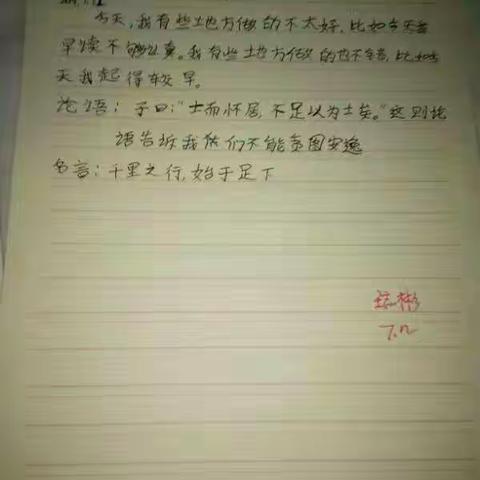 今天，我有些地方做的不太好，比如今天
早读不够认真。我有些地方做的也不错，比如
天我起得较早。
论语：子曰："士而怀居，不足以为士矣。"这则论
语告诉我们不能贪图安逸
名言：千里之行，始于足下
彬
7.12